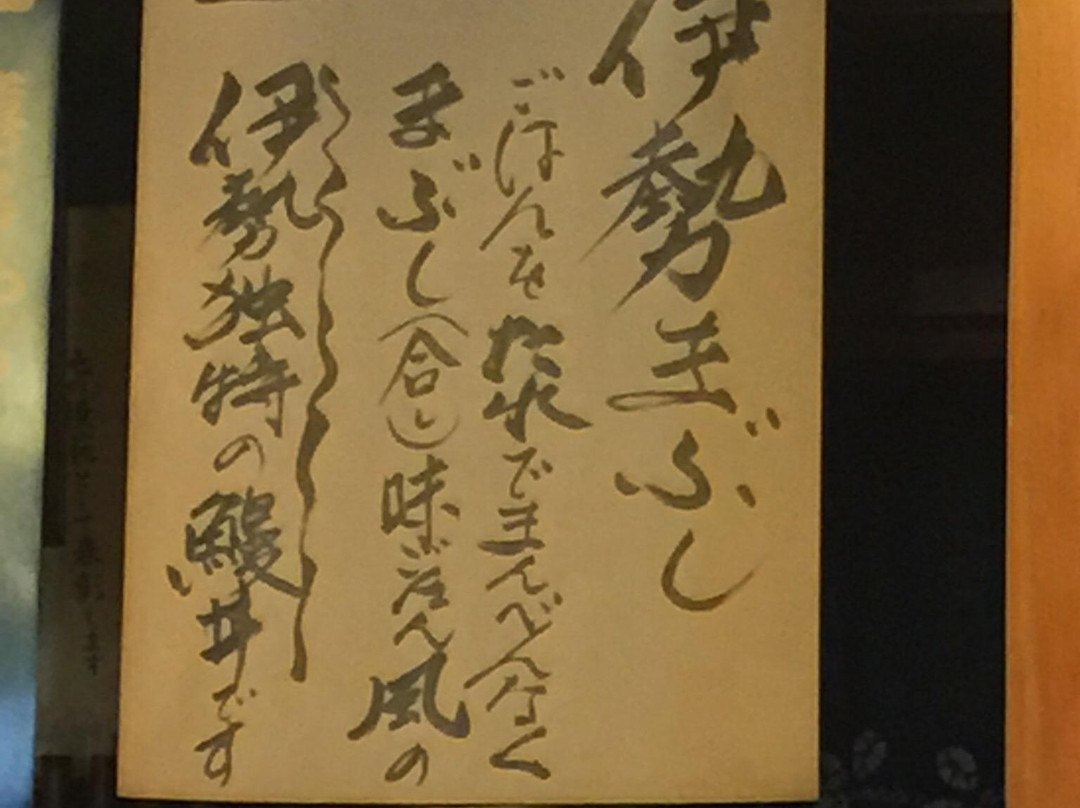 伊勢まぶし
ごはんをたれでまんべんなく
まぶし(合し)味ごはん風の
伊勢独特の鰻丼です